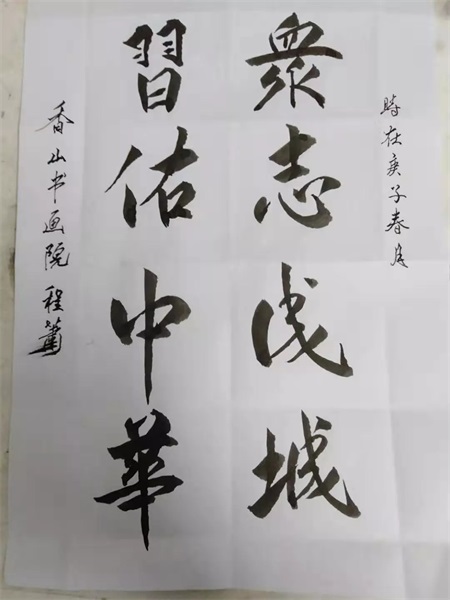 時在庚子春月
眾志成城
習佑中華
香山书画院 程萧